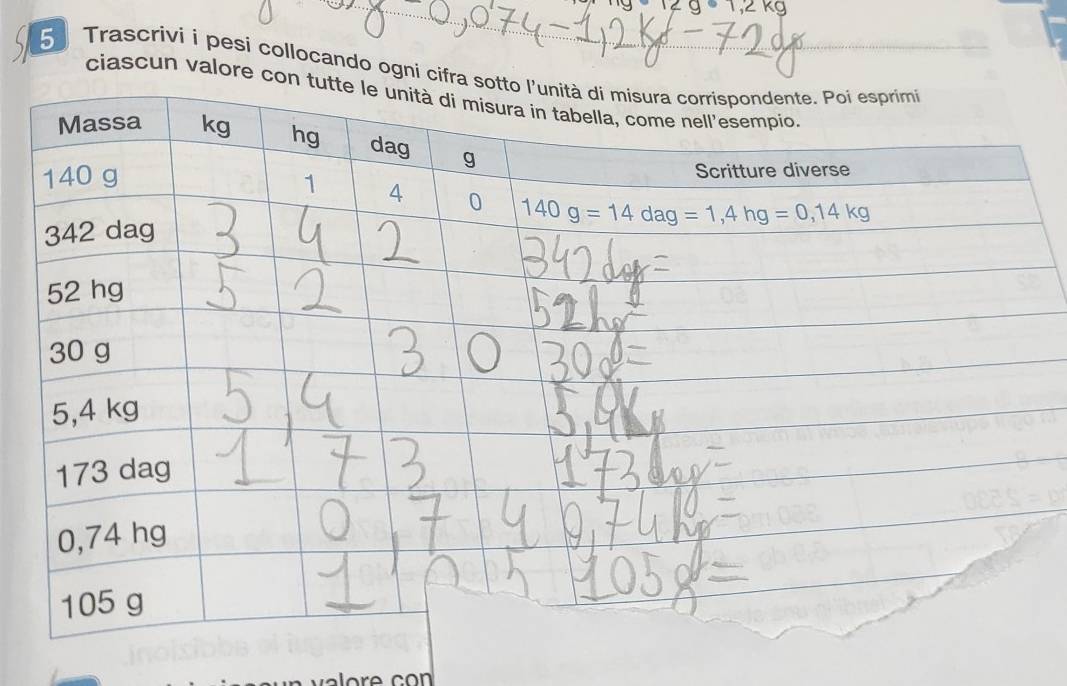 0,074-1,2kg-72dg
12 g • 1,2 kg
5 Trascrivi i pesi collocando ogni cifra sotto l'unità di misura corrispondente. Poi esprimi
ciascun valore con tutte le unità di misura in tabella, come nell'esempio.
Massa kg hg dag g Scritture diverse
140 g 1 4 0 140 g = 14 dag = 1,4 hg = 0,14 kg
342 dag 3 4 2 342 dag=
52 hg 5 2 52hg=
30 g 3 0 30g=
5,4 kg 5,4 5,4kg
173 dag 1 7 3 173dag=
0,74 hg 0,7 4 0,74hg=
105 g 1 0 5 105g=
valore con